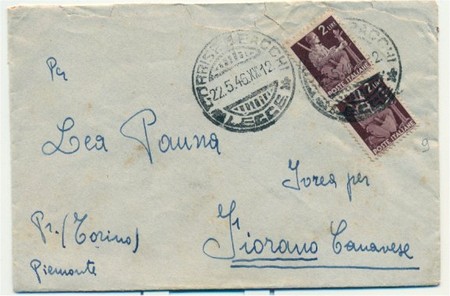 CORRISP. E PACCHI
22.5.46.XII.12
LECCE
2 LIRE
POSTE ITALIANE
POSTE ITALIANE
Per
Lea Pauna
Ivrea per
Fiorano Canavese
Pr. (Torino)
Piemonte
9